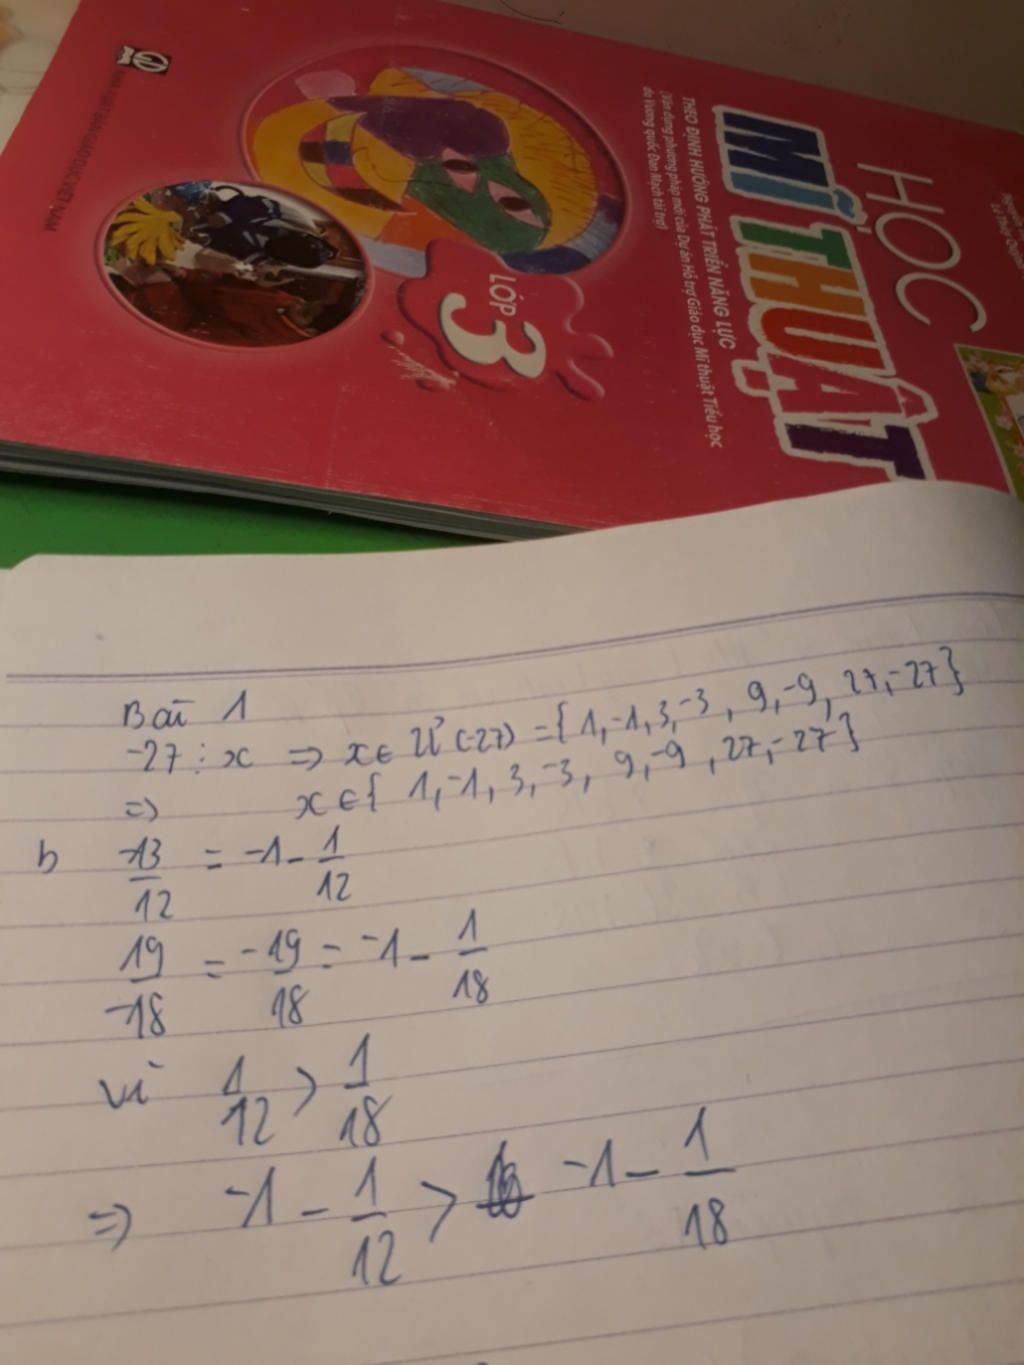 HỌC
MĨ THUẬT
THEO ĐỊNH HƯỚNG PHÁT TRIỂN NĂNG LỰC
(Vận dụng phương pháp mới của Dự án Hỗ trợ Giáo dục Mĩ thuật Tiểu học
do Vương quốc Đan Mạch tài trợ)
LỚP
3
NHÀ XUẤT BẢN GIÁO DỤC VIỆT NAM
Bài 1
-27 ⋮ x => x ∈ Ư(-27) = { 1, -1, 3, -3, 9, -9, 27, -27 }
=> x ∈ { 1, -1, 3, -3, 9, -9, 27, -27 }
b -13/12 = -1 - 1/12
19/-18 = -19/18 = -1 - 1/18
vì 1/12 > 1/18
=> -1 - 1/12 > -1 - 1/18